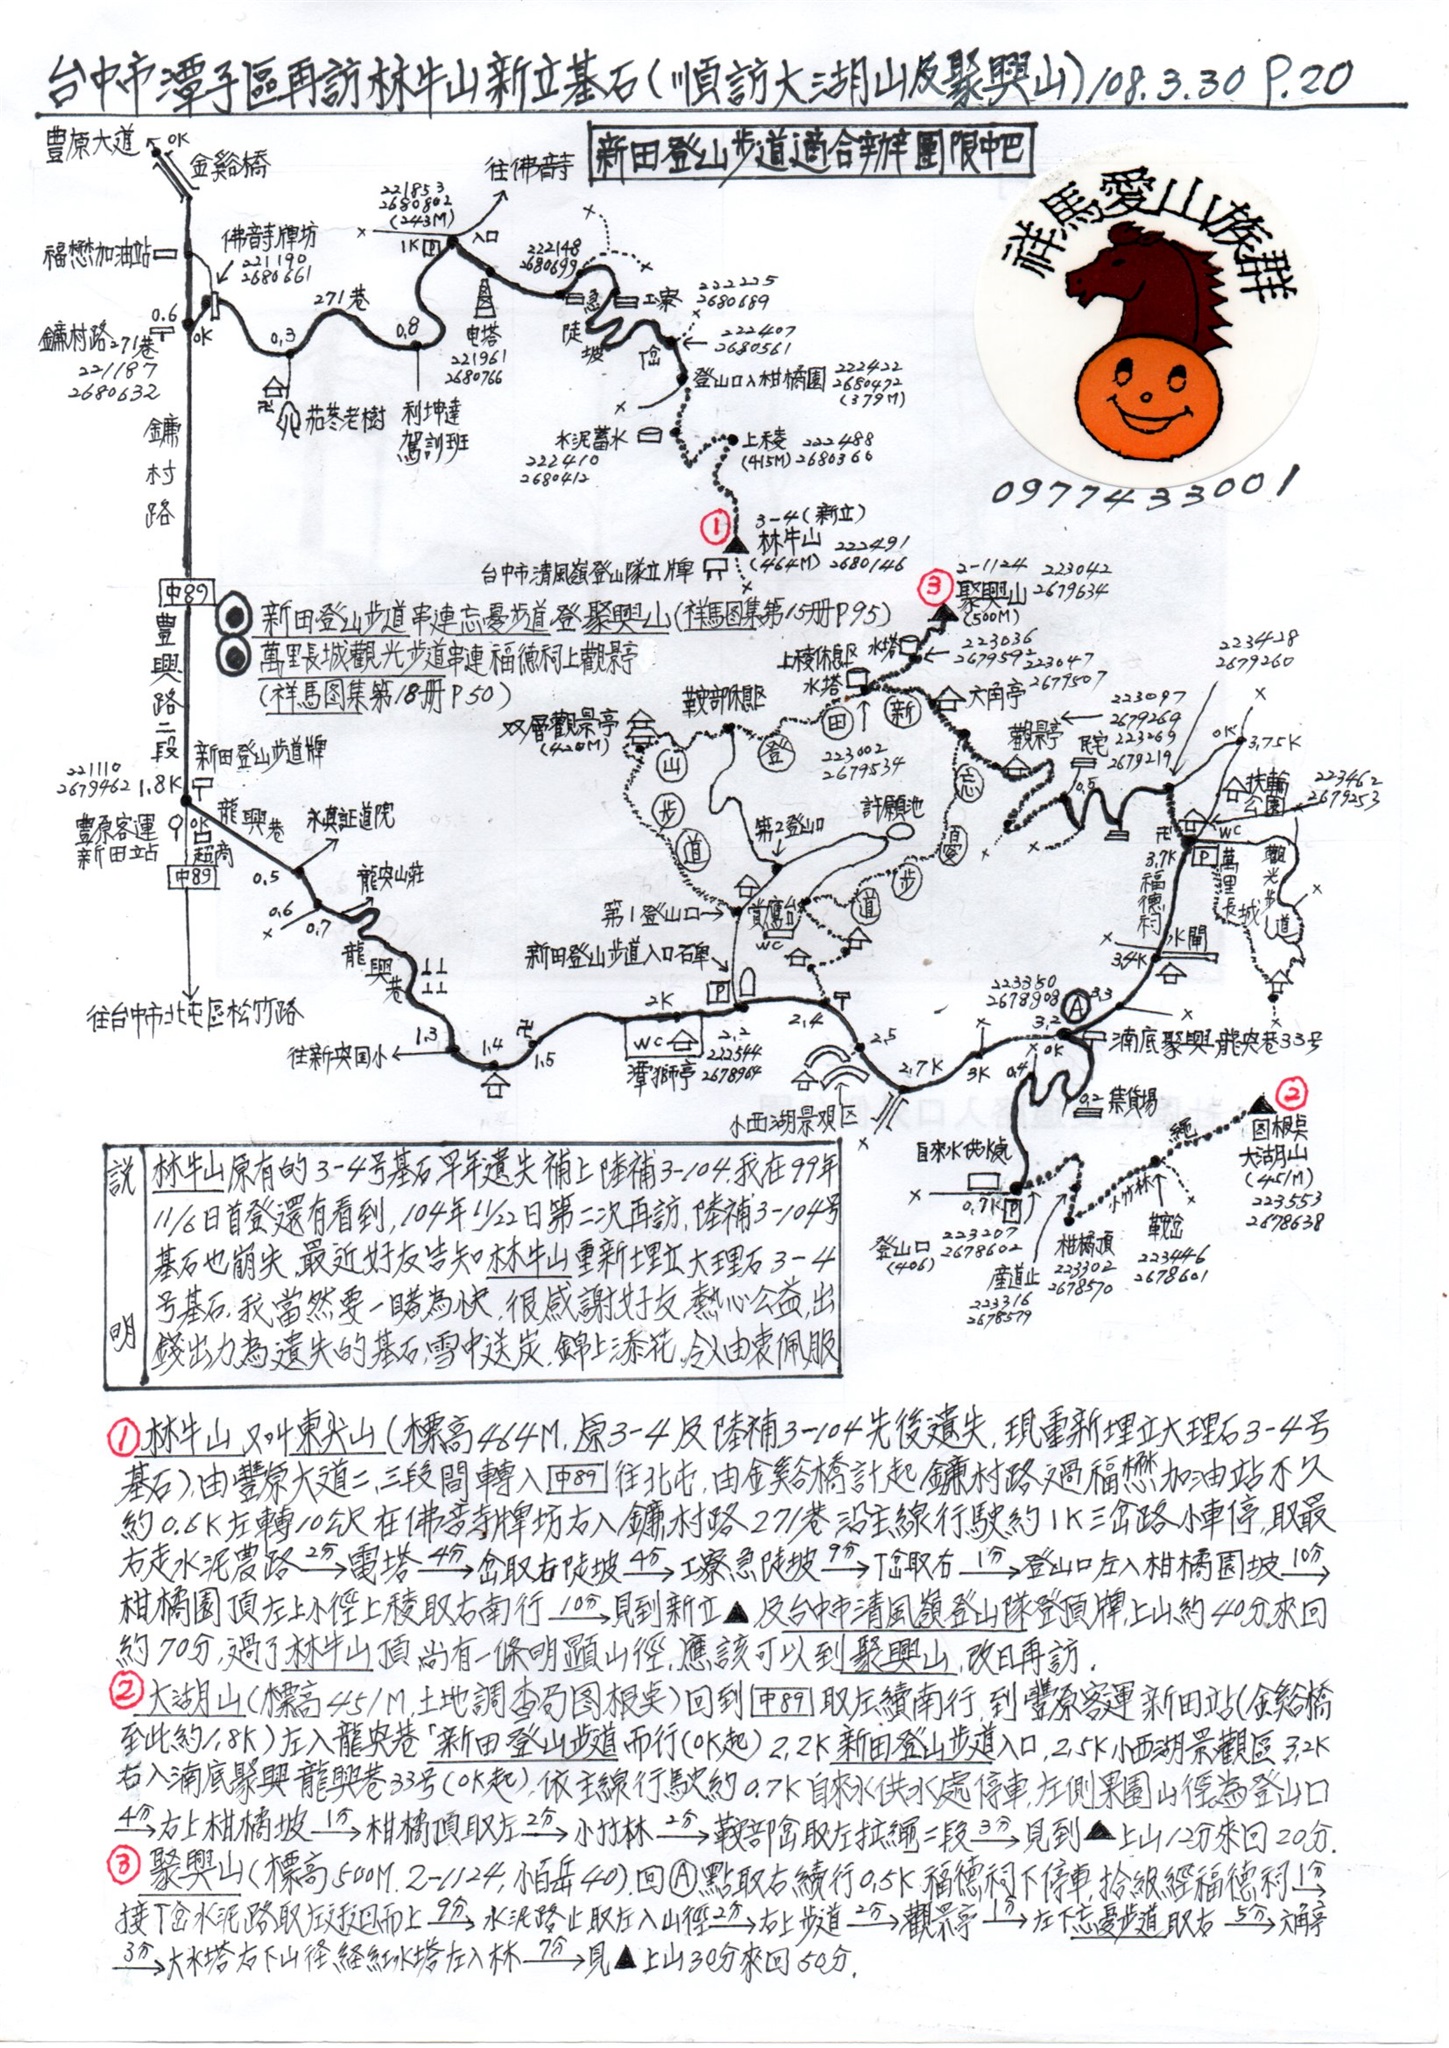 台中市潭子區再訪林牛山新立基石(順訪大湖山及聚興山)108.3.30 P.20
新田登山步道適合辦團限中巴
祥馬愛山族群
0977433001
豐原大道
0K
金谿橋
福懋加油站
佛音寺牌坊
221190
2680661
0.6
0K
鐮村路271巷
221187
2680632
0.3
271巷
0.8
茄苳老樹
利坤達
駕訓班
221853
2680802
(243M)
1K P
入口
往佛音寺
電塔
221961
2680766
222148
2680699
急
陡
坡
工寮
222225
2680689
222407
2680561
岔
登山口入柑橘園
222422
2680472
(379M)
水泥蓄水
222410
2680412
上稜
(415M)
222488
2680366
鐮村路
① 3-4(新立)
林牛山
(464M)
222491
2680146
台中市清風嶺登山隊立牌
中89
豐興路二段
新田登山步道串連忘憂步道登聚興山(祥馬图集第15册P95)
萬里長城觀光步道串連福德祠上觀景亭
(祥馬图集第18册P50)
③ 2-1124
聚興山
(500M)
223042
2679634
水塔
223036
2679592
上稜休息区
水塔
223047
2679507
六角亭
223002
2679534
鞍部休息区
双層觀景亭
(420M)
新田登山步道
忘憂步道
觀景亭
223097
2679269
民宅
223269
2679219
0.5
223428
2679260
0K
3.75K
扶輪
公園
223462
2679253
WC
P
3.7K
福德祠
萬里長城
觀光步道
水閘
3.4K
許願池
第2登山口
第1登山口
賞鷹台
WC
新田登山步道入口石碑
P
新田登山步道牌
221110
2679462
1.8K
0K
豐原客運
新田站
超商
中89
往台中市北屯區松竹路
龍興巷
永興証道院
0.5
0.6
0.7
龍興山莊
龍興巷
1.3
往新興国小
1.4
1.5
2K
WC
潭獅亭
2.2
222544
2678964
2.4
2.5
2.7K
小西湖景观区
3K
223350
2678908
Ⓐ
3.3
3.2
0K
湳底聚興龍興巷33号
0.4
0.2
集貨場
自來水供水處
0.7K P
登山口
(406)
223207
2678602
產道止
223316
2678579
柑橘頂
223302
2678570
小竹林
鞍岔
223446
2678601
繩
②
图根桌
大湖山
(451M)
223553
2678638
説明
林牛山原有的3-4号基石早年遺失補上陸補3-104.我在99年
11/6日首登還有看到,104年11/22日第二次再訪,陸補3-104号
基石也崩失,最近好友告知林牛山重新埋立大理石3-4
号基石,我當然要一睹為快,很感謝好友,熱心公益,出
錢出力為遺失的基石,雪中送炭,錦上添花,令人由衷佩服
① 林牛山又叫東尖山(標高464M,原3-4及陸補3-104先後遺失,現重新埋立大理石3-4号
基石),由豐原大道二,三段間轉入中89往北屯,由金谿橋計起鐮村路過福懋加油站不久
約0.6K左轉10公尺在佛音寺牌坊右入鐮村路271巷沿主線行駛約1K三岔路小車停,取最
右走水泥農路 2分→ 電塔 4分→ 岔取右陡坡 4分→ 工寮急陡坡 9分→ T岔取右 1分→ 登山口左入柑橘園坡 10分→
柑橘園頂左上小徑上稜取右南行 10分→ 見到新立▲及台中市清風嶺登山隊登頂牌,上山約40分來回
約70分,過了林牛山頂尚有一條明顯山徑,應該可以到聚興山,改日再訪.
② 大湖山(標高451M,土地調查局图根桌)回到中89取左續南行,到豐原客運新田站(金谿橋
至此約1.8K)左入龍興巷「新田登山步道而行(0K起)2.2K新田登山步道入口,2.5K小西湖景觀區3.2K
右入湳底聚興龍興巷33号(0K起),依主線行駛約0.7K自來水供水處停車,左側果園山徑為登山口
4分→ 右上柑橘坡 1分→ 柑橘頂取左 2分→ 小竹林 2分→ 鞍部岔取左拉繩二段 3分→ 見到▲上山12分來回20分.
③ 聚興山(標高500M.2-1124,小百岳40),回Ⓐ點取右續行0.5K福德祠下停車,拾級經福德祠 1分→
接T岔水泥路取左迂迴而上 9分→ 水泥路止取左入山徑 2分→ 右上步道 2分→ 觀景亭 1分→ 左下忘憂步道取右 5分→ 六角亭
3分→ 大水塔右下山径経紅水塔左入林 7分→ 見▲上山30分來回50分.